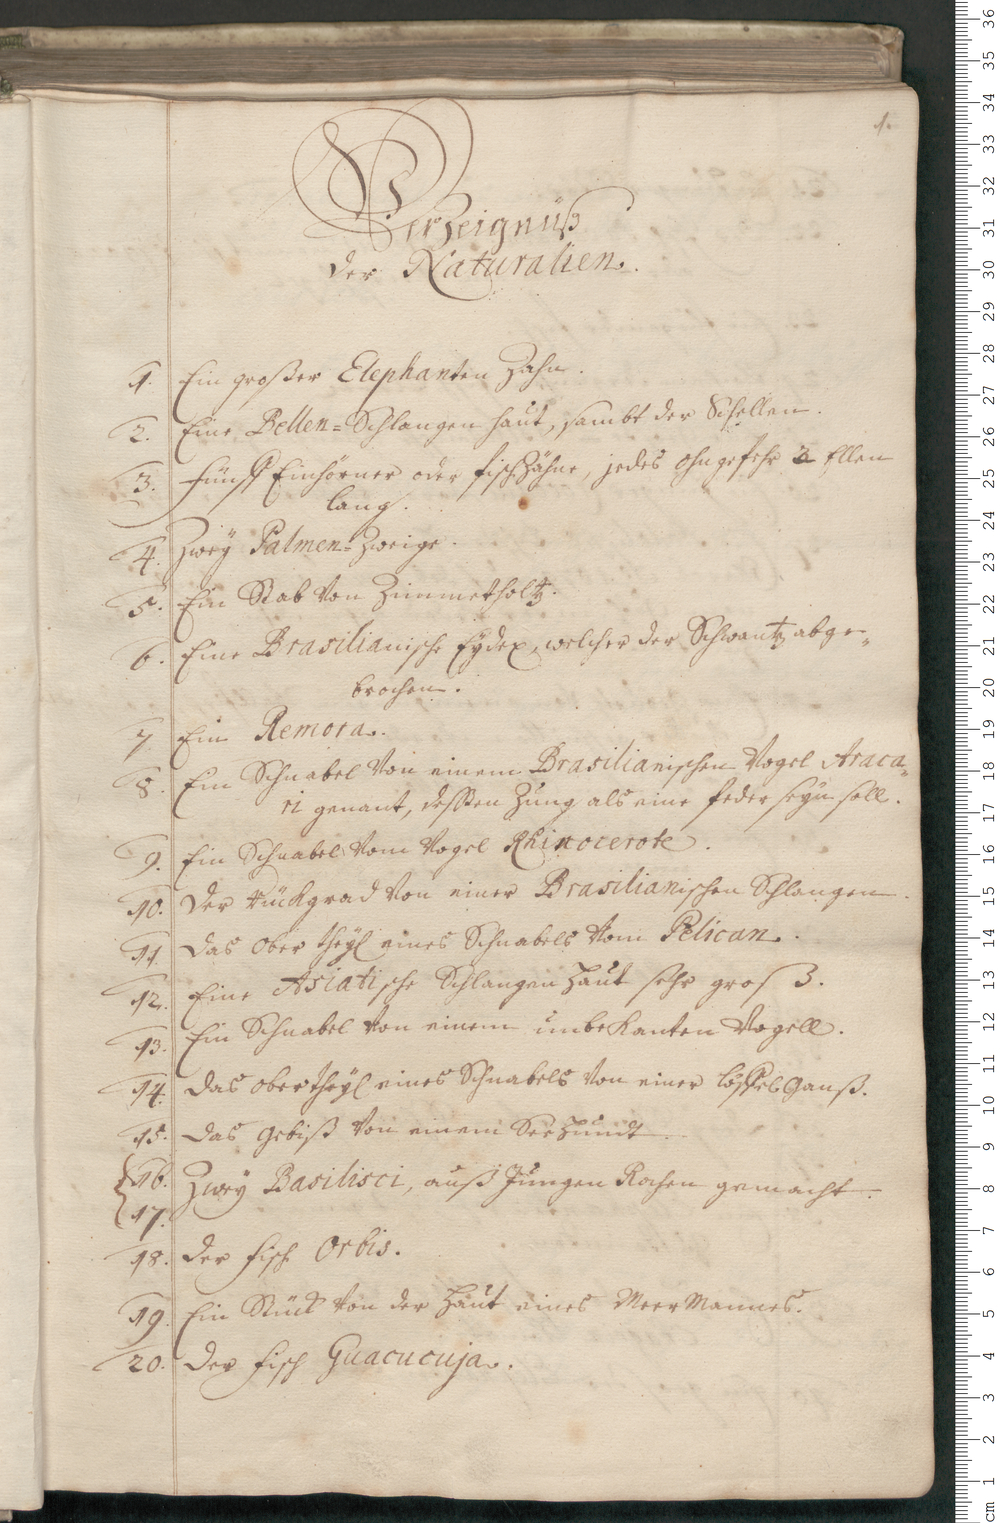 1.
Verzeignüß
der Naturalien.
1. Ein großer Elephanten Zahn.
2. Eine Bellen-Schlangen haut, sambt der Schellen.
3. Fünff Einhörner oder fischzähne, jedes ohngefehr 2 Ellen
lang.
4. Zweÿ Palmen-Zweige.
5. Ein Stab von Zimmetholtz.
6. Eine Brasilianische Eÿdex, welcher der Schwantz abge-
brochen.
7. Ein Remora.
8. Ein Schnabel von einem Brasilianischen Vogel Araca-
ri genant, deßen Zung als eine feder seyn soll.
9. Ein Schnabel vom Vogel Rhinocerote.
10. Der Rückgrad von einer Brasilianischen Schlangen.
11. Das ober theyl eines Schnabels vom Pelican.
12. Eine Asiatische Schlangen Haut sehr groß.
13. Ein Schnabel von einem unbekanten Vogell.
14. Das obertheyl eines Schnabels von einer löffel Ganß.
15. Das Gebiß von einem Seehundt.
16. Zweÿ Basilisci, auß Jungen Rochen gemacht.
17.
18. Der fisch Orbis.
19. Ein Stück von der Haut eines Meer Mannes.
20. Der fisch Guacucuja.
cm 1 2 3 4 5 6 7 8 9 10 11 12 13 14 15 16 17 18 19 20 21 22 23 24 25 26 27 28 29 30 31 32 33 34 35 36